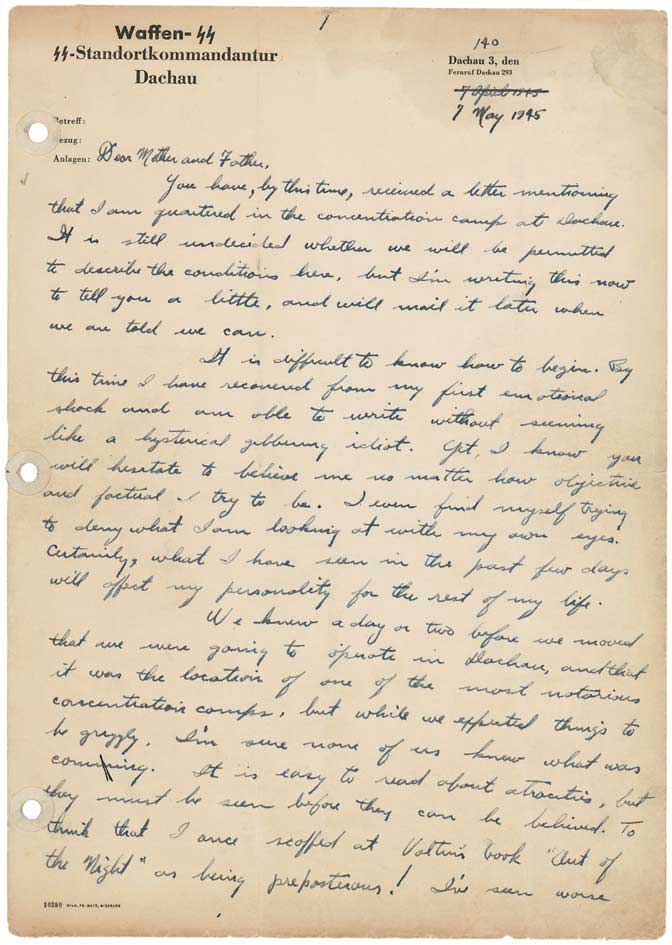 1
Waffen-SS
SS-Standortkommandantur
Dachau
140
Dachau 3, den
Fernruf Dachau 293
7 April 1945
7 May 1945
Betreff:
Bezug:
Anlagen: Dear Mother and Father,
You have, by this time, received a letter mentioning
that I am quartered in the concentration camp at Dachau.
It is still undecided whether we will be permitted
to describe the conditions here, but I'm writing this now
to tell you a little, and will mail it later when
we are told we can.
It is difficult to know how to begin. By
this time I have recovered from my first emotional
shock and am able to write without seeming
like a hysterical gibbering idiot. Yet, I know you
will hesitate to believe me no matter how objective
and factual I try to be. I even find myself trying
to deny what I am looking at with my own eyes.
Certainly, what I have seen in the past few days
will affect my personality for the rest of my life.
We knew a day or two before we moved
that we were going to operate in Dachau, and that
it was the location of one of the most notorious
concentration camps, but while we expected things to
be grizzly, I'm sure none of us knew what was
coming. It is easy to read about atrocities, but
they must be seen before they can be believed. To
think that I once scoffed at Valtin's book "Out of
the Night" as being preposterous! I've seen worse
16299